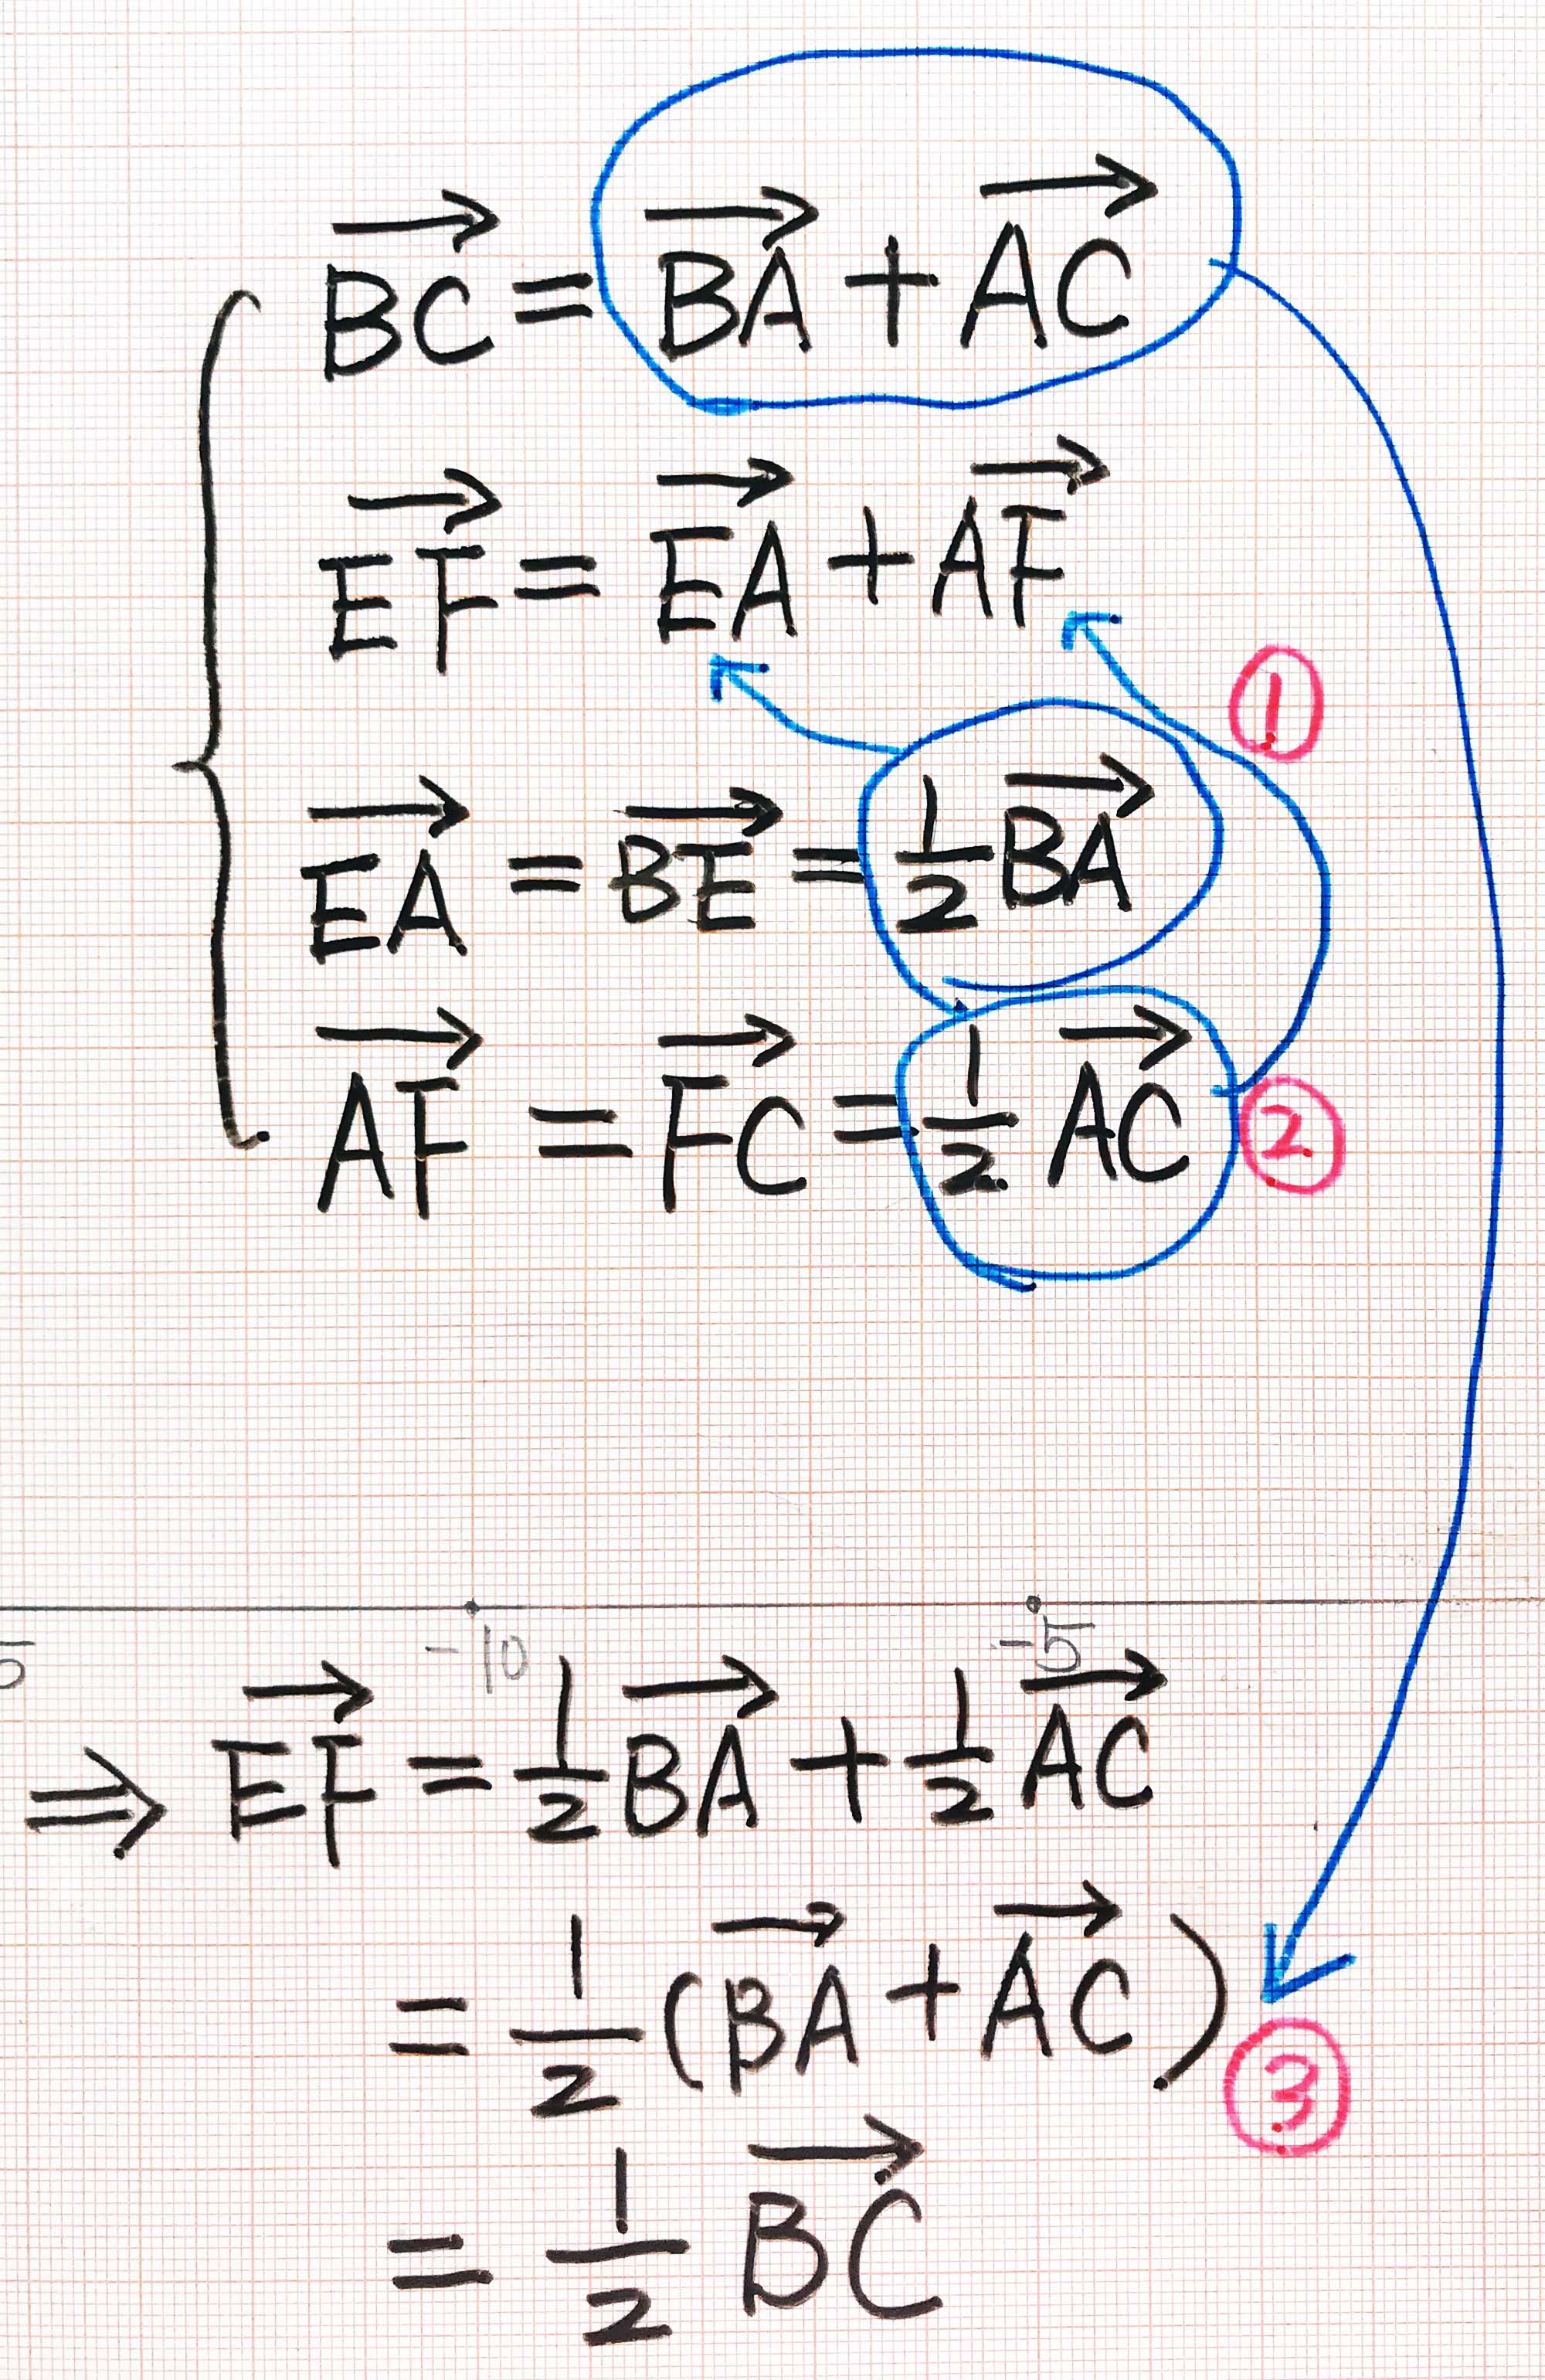 $\overrightarrow{BC} = \overrightarrow{BA} + \overrightarrow{AC}$
$\overrightarrow{EF} = \overrightarrow{EA} + \overrightarrow{AF}$
①
$\overrightarrow{EA} = \overrightarrow{BE} = \frac{1}{2}\overrightarrow{BA}$
$\overrightarrow{AF} = \overrightarrow{FC} = \frac{1}{2}\overrightarrow{AC}$ ②
-10 -5
$\Rightarrow \overrightarrow{EF} = \frac{1}{2}\overrightarrow{BA} + \frac{1}{2}\overrightarrow{AC}$
$= \frac{1}{2}(\overrightarrow{BA} + \overrightarrow{AC})$
③
$= \frac{1}{2}\overrightarrow{BC}$